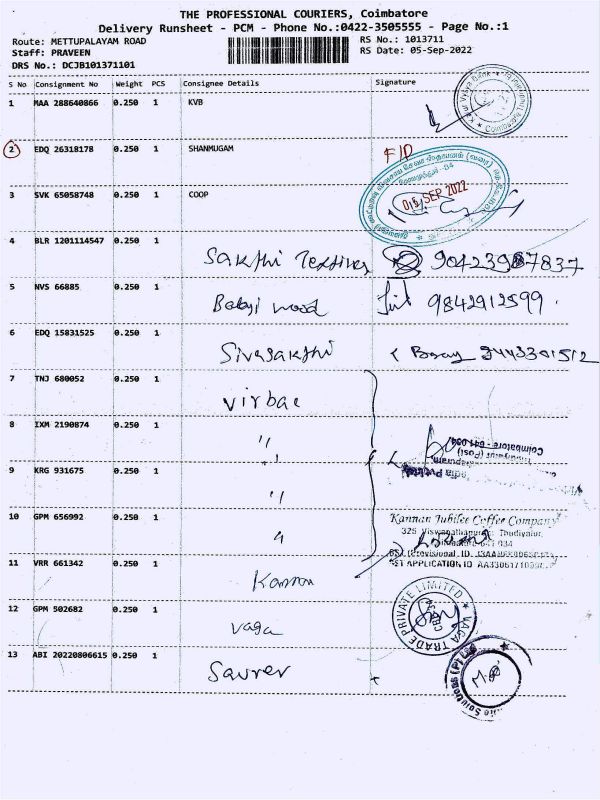 THE PROFESSIONAL COURIERS, Coimbatore
Delivery Runsheet - PCM - Phone No.:0422-3505555 - Page No.:1
Route: METTUPALAYAM ROAD
RS No.: 1013711
Staff: PRAVEEN
RS Date: 05-Sep-2022
DRS No.: DCJB101371101
S No Consignment No Weight PCS Consignee Details Signature
1 MAA 288640866 0.250 1 KVB
2 EDQ 26318178 0.250 1 SHANMUGAM F/D
3 SVK 65058748 0.250 1 COOP
SEP 2022
4 BLR 1201114547 0.250 1 Sakthi Textiles
5 NVS 66885 0.250 1 9842912599
6 EDQ 15831525 0.250 1 Sivasakthi
7 TNJ 680052 0.250 1 Virbac
8 IXM 2190874 0.250 1 "
Coimbatore - 641 034
9 KRG 931675 0.250 1 "
10 GPM 656992 0.250 1 "
Kannan Jubilee Coffee Company
11 VRR 661342 0.250 1 Kannan
12 GPM 502682 0.250 1 Vaga
VAGA TRADE PRIVATE LIMITED
13 ABI 20220806615 0.250 1
Solutions (P) Ltd